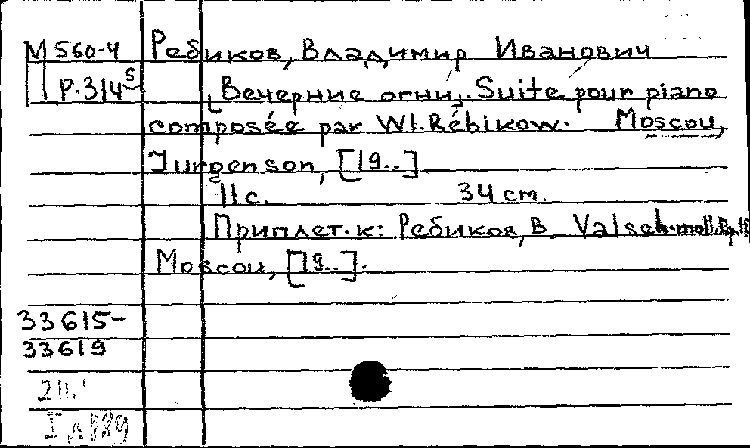 М 560-4 Ребиков, Владимир Иванович
Р-314 5 "Вечерние огни". Suite pour piano
composée par Wl. Rébikow. Moscou,
Jurgenson, [19..]
11 с. 34 cm.
Приплет. к: Ребиков, В. Valse h-moll.
Moscou, [19..].
33615-
33619